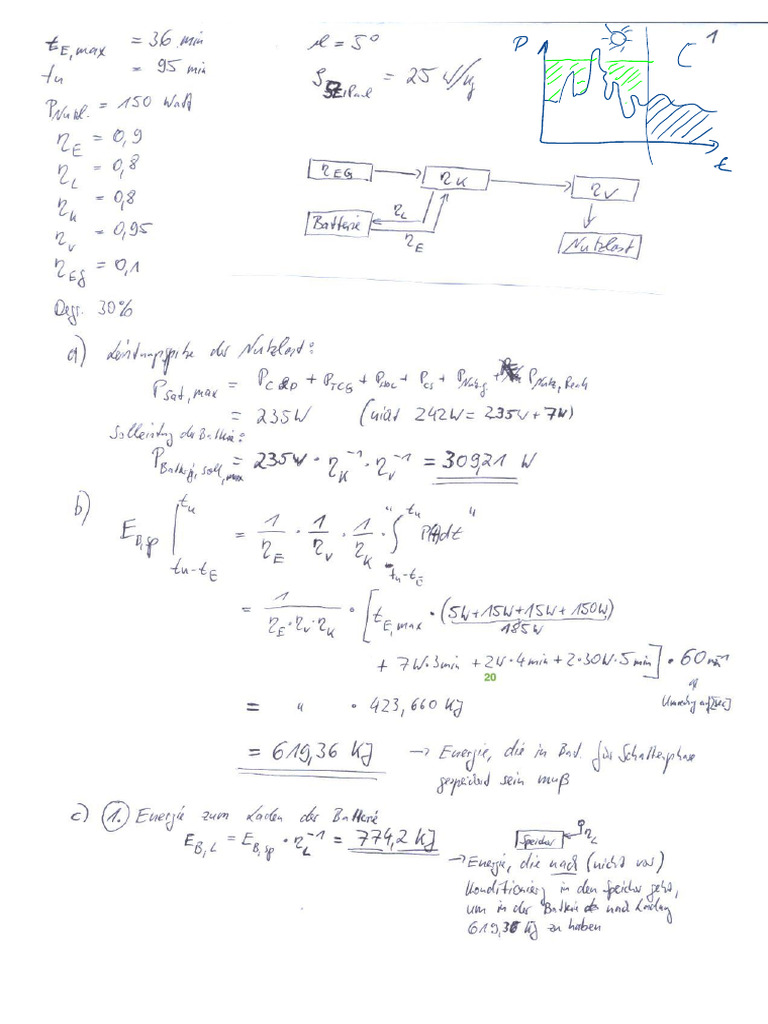 t_E,max = 36 min
t_u = 95 min
P_Nutzl. = 150 Watt
η_E = 0,9
η_L = 0,8
η_K = 0,8
η_V = 0,95
η_Eg = 0,1
Degr. 30%
α = 5°
= 25 W/kg
P
t
C 1
η_EG
η_K
η_V
Batterie
η_L
η_E
Nutzlast
a) Leistungsspitze der Nutzlast:
P_Sat,max = + P_TCG + + P_CS + + P_Nutz,
= 235W (nicht 242W = 235W + 7W)
Solleistung der Batterie:
P_Batterie,soll,max = 235W · η_K⁻¹ · η_V⁻¹ = 309,21 W
b) E_B,sp |_{t_u-t_E}^{t_u} = 1/η_E · 1/η_V · 1/η_K · "∫_{t_u-t_E}^{t_u} P(t)dt"
= 1/(η_E·η_V·η_K) · [t_E,max · (5W+15W+15W+150W)
185W
+ 7W·3min + 2W·4min + 2·30W·5min] · 60
20
Umrechng auf [sec]
= " · 423,660 KJ
= 619,36 KJ → Energie, die in Bat. für Schattenphase
gespeichert sein muß
c) 1. Energie zum Laden der Batterie
E_B,L = E_B,sp · η_L⁻¹ = 774,2 KJ
Speicher
η_L
→ Energie, die nach (nicht vor)
Konditionierg in den Speicher geht,
um in der Batterie nach Ladung
619,36 KJ zu haben